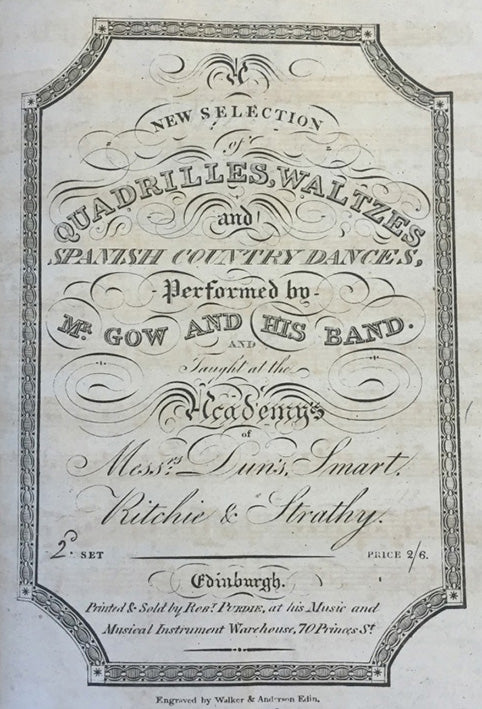 A
NEW SELECTION
of
QUADRILLES, WALTZES
and
SPANISH COUNTRY DANCES,
Performed by
Mr. GOW AND HIS BAND.
AND
Taught at the
Academy's
of
Messrs. Dun's, Smart,
Ritchie & Strathy.
2d. SET PRICE 2/6.
Edinburgh.
Printed & Sold by Robt. Purdie, at his Music and
Musical Instrument Warehouse, 70 Princes St.
Engraved by Walker & Anderson Edin.